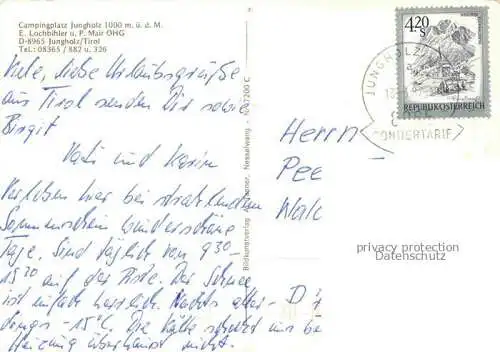 Campingplatz Jungholz 1000 m. ü. d. M.
E. Lochbihler u. P. Mair OHG
D-8965 Jungholz/Tirol
Tel.: 08365 / 882 u. 326
Viele, liebe Urlaubsgrüße
aus Tirol senden Dir sowie
Birgit
Vati und Karin
Verleben hier bei strahlendem
Sonnenschein wunderschöne
Tage. Sind täglich von 9³⁰ -
15³⁰ auf der Piste. Der Schnee
ist einfach herrlich. Nachts aller-
dings -15°C. Die Kälte uns bei
Heizung überhaupt nicht.
Bildkunstverlag Nesselwang - N 87200 C
4.20
S
REPUBLIK ÖSTERREICH
JUNGHOLZ
SONDERTARIF
Herrn
Pee
Wald
D
privacy protection
Datenschutz